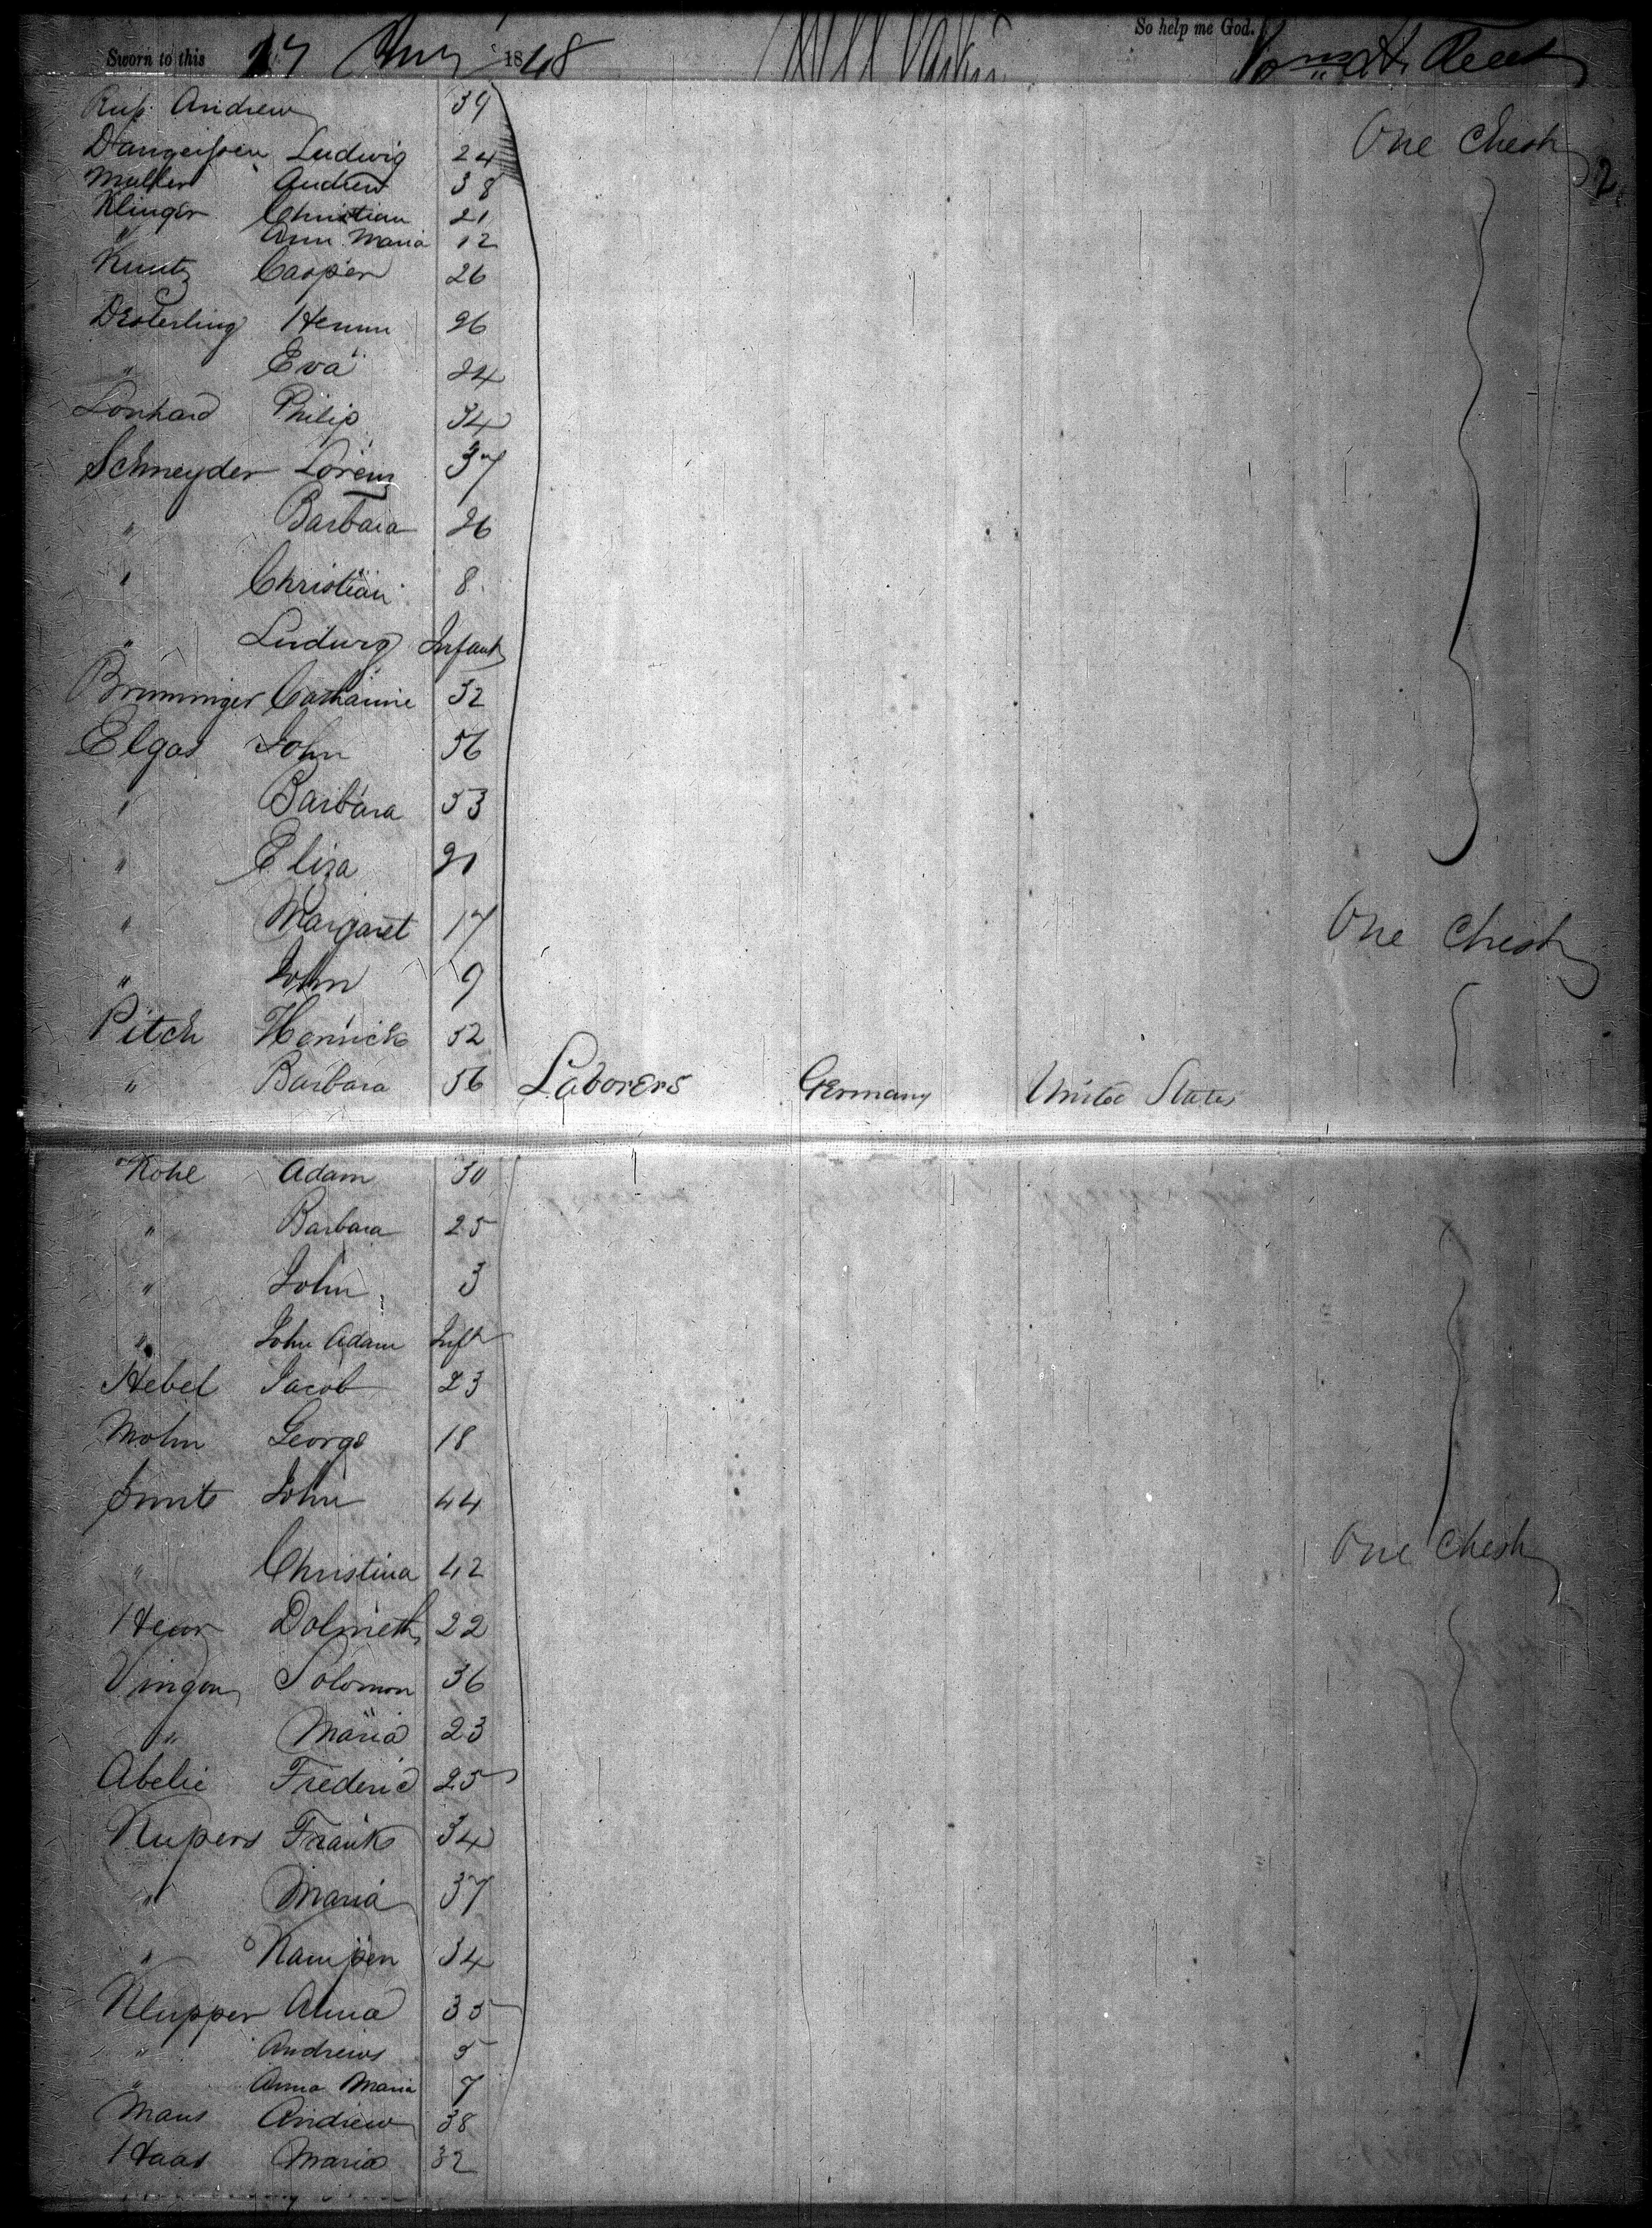 So help me God.
Sworn to this 27 1848
Andrew 39
Ludwig 24
Muller Andrew 38
Klinger Christian 21
" Ann Maria 12
Kuntz Casper 26
One Chest
2
Henrn 26
" Eva 24
Lonhard Philip 34
Schneyder Lorenz 37
" Barbara 26
" Christian 8
" Ludwig Infant
Brunninger Catharine 32
Elgas John 56
" Barbara 53
" Eliza 21
" Margaret 17
One Chest
" John 9
Pitch Henrick 52
" Barbara 56 Laborers Germany United States
Kohl Adam 30
" Barbara 25
" John 3
" John Adam Inft
Hebel Jacob 23
Mohn George 18
John 44
One Chest
" Christina 42
22
Solomon 36
" Maria 23
Abelie Frederic 25
Kupers Frank 34
" Maria 37
" Kampen 34
Klupper Anna 35
" Andrews 5
" Anna Maria 7
Maus Andrew 38
Haas Maria 32